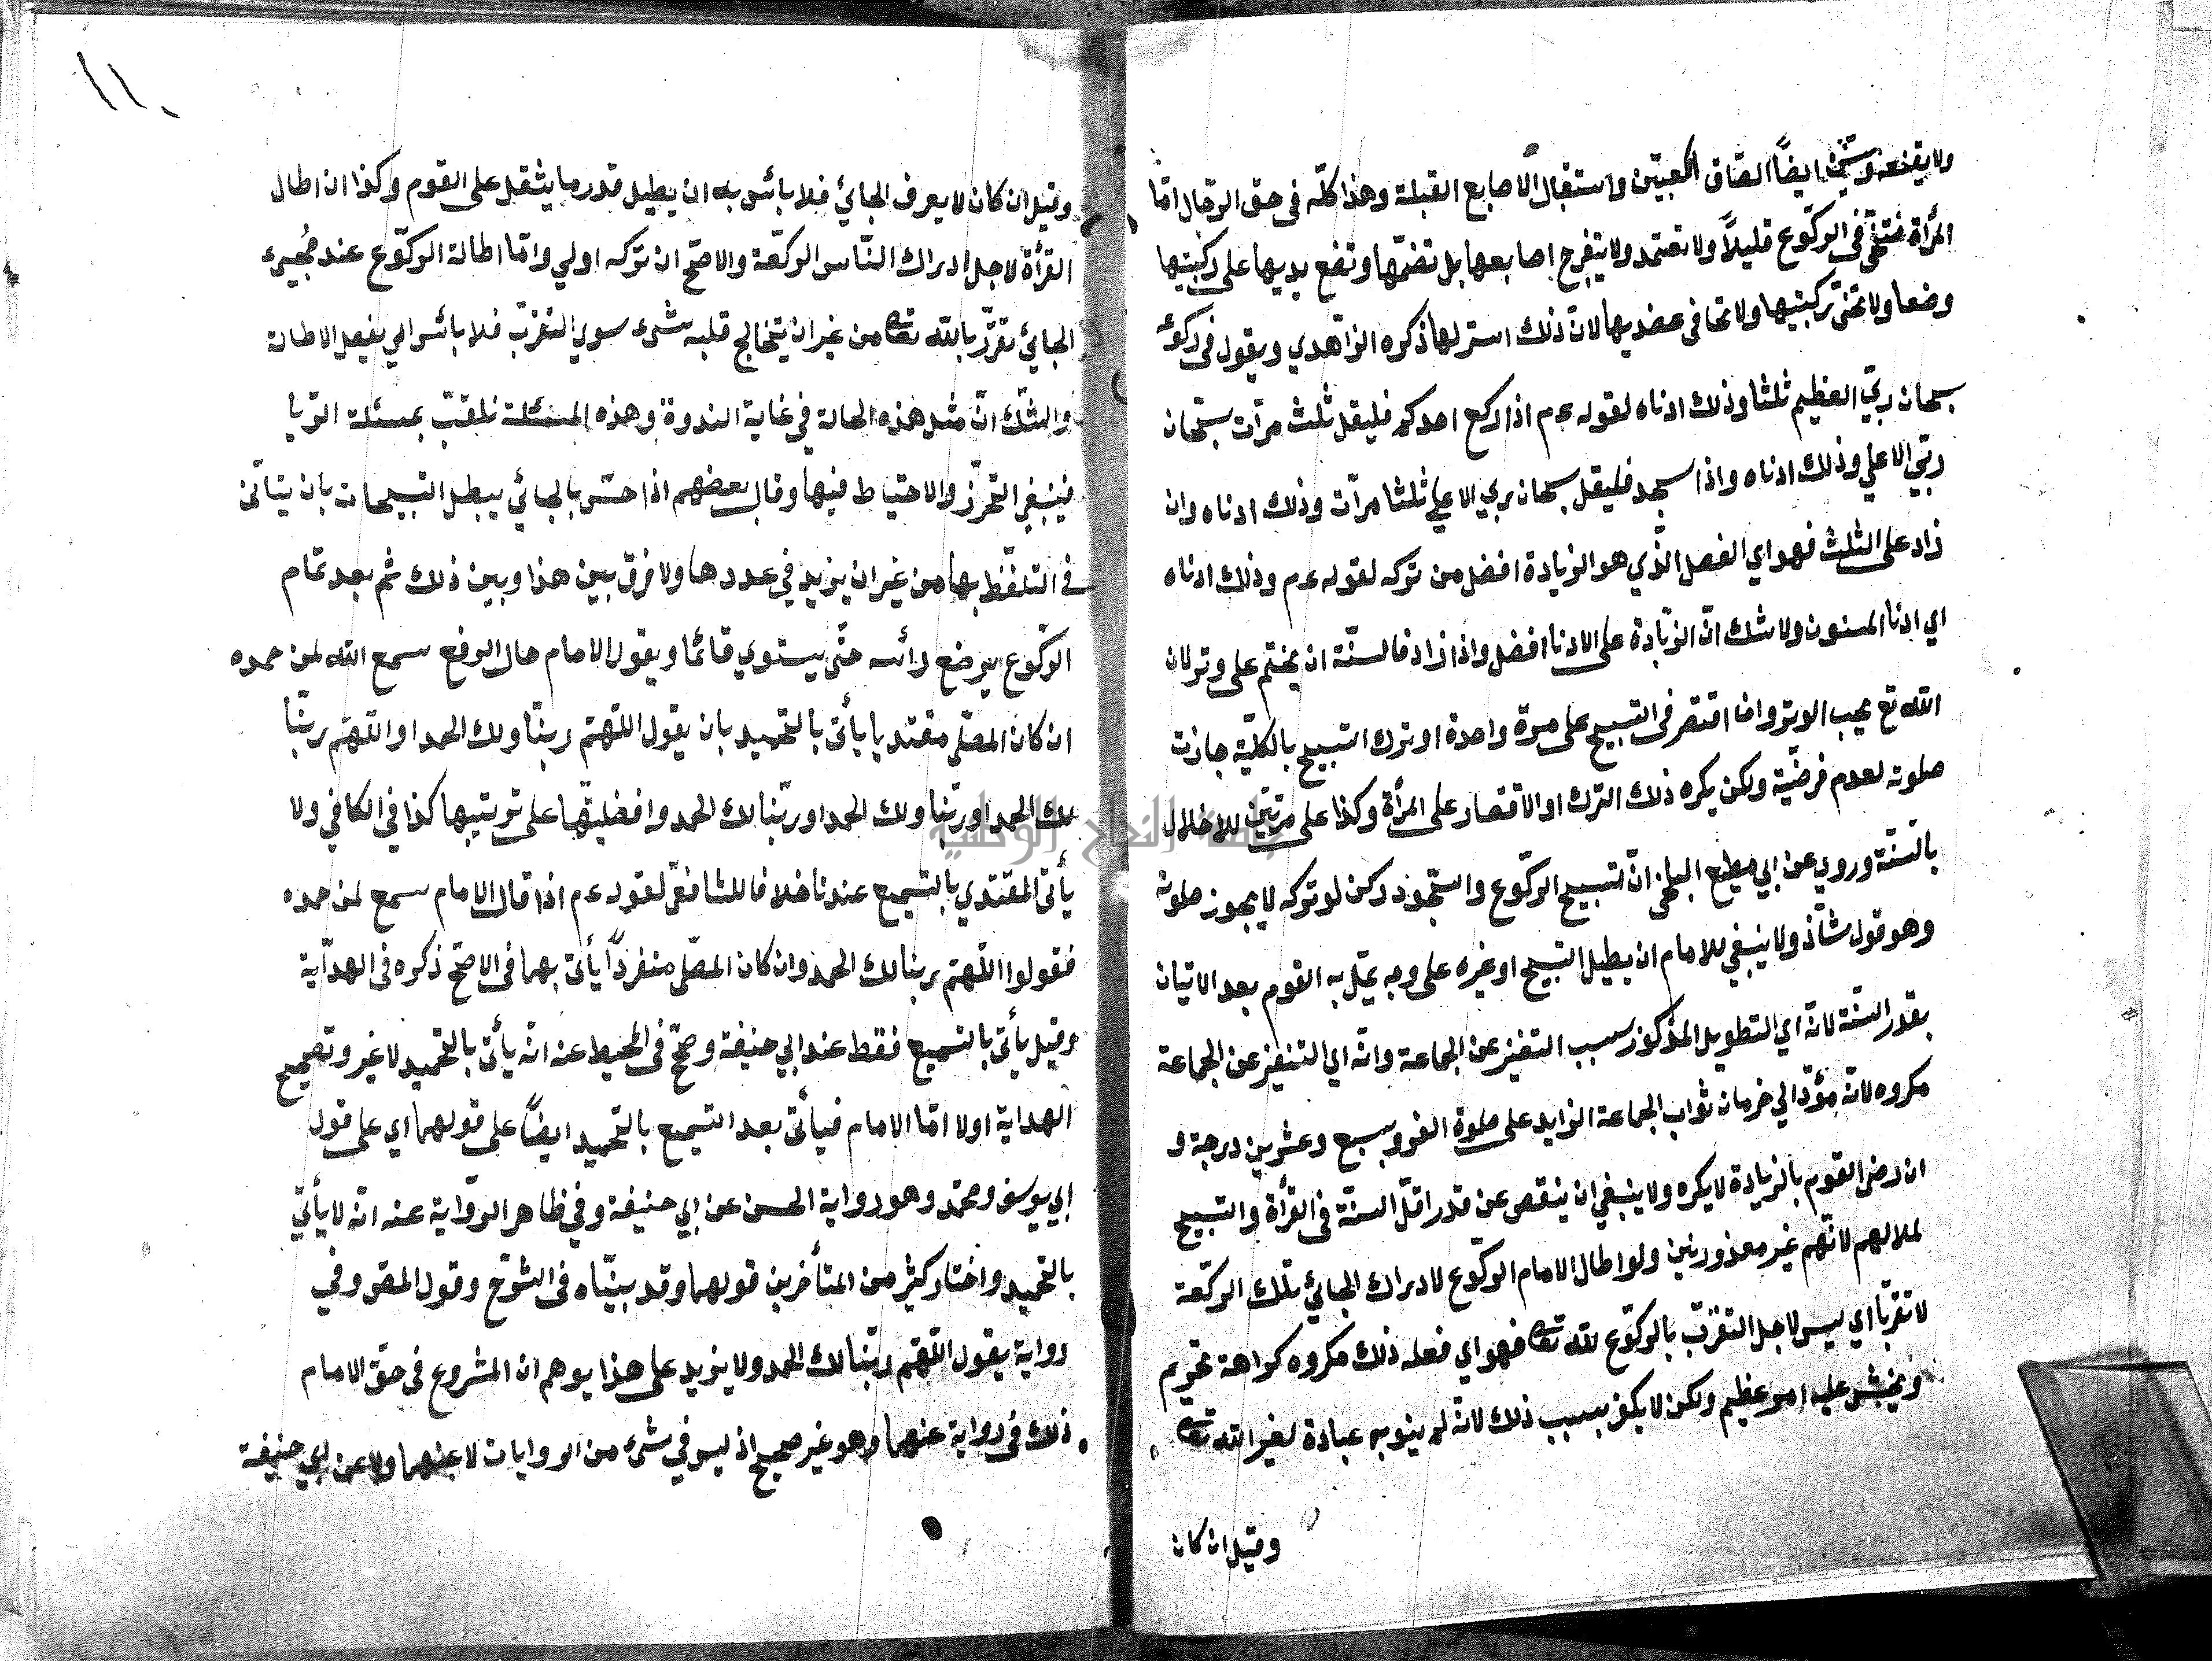 ولا يقنعه وسنّ ايضًا الصاق الكعبين واستقبال الاصابع القبلة وهذا كلّه فى حق الرّجال امّا
المرأة فتنحنى فى الركّوع قليلاً ولا تعتمد ولا يتفرج اصابعها بل تضمّها وتضع يديها على ركبتيها
وضعا ولا تحنى ركبتيها ولا تجافى عضديها لانّ ذلك استر لها ذكره الزّاهدي ويقول فى ركوعه
سبحان ربيّ العظيم ثلثا وذلك ادناه لقوله عم اذا ركع احدكم فليقل ثلث مرّات سبحان
ربّي الاعلي وذلك ادناه واذا سجد فليقل سبحان ربي الاعلي ثلثا مرّات وذلك ادناه وان
زاد على الثلث فهو اي الفصل الّذي هو الزيادة افضل من تركه لقوله عم وذلك ادناه
اي ادنا المسنون ولا شك انّ الزيّادة على الادنا افضل واذا زاد فالسنّة ان يختم على وتر لان
الله تع يحب الوتر وان اقتصر فى التسبيح على مرة واحدة او ترك التسبيح بالكليّة جازت
صلوته لعدم فرضيّة ولكن يكره ذلك الترك او الاقتصار على المرأة وكذا على مرّتين للاخلال
بالسّنة وروي عن ابي مطيع البلخى انّ تسبيح الركّوع والسّجود ركن لو تركه لا يجوز صلوته
وهو قول شاّذ ولا ينبغي للامام ان يطيل التسبيح او غيره على وجه يملّ به القوم بعد الاتيان
بقدر السّنة لانّه اي التطويل المذكور سبب التنفير عن الجماعة وانّه اي التنفير عن الجماعة
مكروه لانّه مؤدّ الي خرمان ثواب الجماعة الزايد على صلوة الفرد وسبع وعشرين درجة و
ان رضى القوم بالزيادة لا يكره ولا ينبغي ان ينقص عن قدر اقلّ السنّة فى القرأة والتسبيح
لملالهم لانّهم غير معذورين ولو اطال الامام الركوّع لادراك الجائي تلك الركّعة
لا تقربّا اي ليس لاجل التقرّب بالركّوع لله تعا فهو اي فعله ذلك مكروه كراهة تحريم
ويخشى عليه امر عظيم ولكن لا يكفر بسبب ذلك لانّه لم ينو به عبادة لغير الله تعا
وقيل ان كان
١١٠
وقيل ان كان لا يعرف الجائي فلا بائس به ان يطيل قدر ما يثقل على القوم وكذا ان اطال
القرأة لاجل ادراك النّاس الركّعة والاصحّ ان تركه اولي وامّا اطالة الركّوع عند مجيء
الجائي تقرّبا لله تعا من غير ان يتخالج قلبه شىء سوي التقربّ فلا بائس الي بفعل الاطالة
والشّك انّ مثل هذه الحالة في غاية الندرة وهذه المسئلة تلقبّ بمسئلة الرّيا
فينبغي التحرّز والاحتياط فيها وقال بعضهم اذا حسّ بالجائي يبطل التسبيحات بان يتأنّى
فى التلفّظ بها من غير ان يزيد في عددها ولا فرق بين هذا وبين ذلك ثم بعد تمام
الركّوع يرفع رائسه حتّى يستوي قائما ويقول الامام حال الرفع سمع الله لمن حمده
ان كان المصلّى مقتديا يأتى بالتحميد بان يقول اللّهمّ ربنّا ولك الحمد او اللهّم ربنّا
لك الحمد او ربّنا ولك الحمد او ربّنا لك الحمد وافضليتّها على ترتيبها كذا في الكافي ولا
يأتى المقتدي بالتسميع عندنا خلافا للشافعىّ لقوله عم اذا قال الامام سمع لمن حمده
فقولوا اللّهمّ ربنا لك الحمد وان كان المصلّى منفردًا يأتى بهما فى الاصحّ ذكره فى الهداّية
وقيل يأتى بالتسميع فقط عند ابي حنيفة وصحّ فى المحيط عنه انّه يأتى بالتحميد لا غير وتصحيح
الهداية اولا امّا الامام فيأتى بعد التسميع بالتحميد ايضًا على قولهما اي على قول
ابي يوسف ومحمّد وهو رواية الحسن عن ابي حنيفة وفي ظاهر الروّاية عنه انّه لا يأتي
بالتحميد واختار كثير من المتأخرين قولهما وقد بينّاه فى الشرّح وقول المصّ وفي
رواية يقول اللّهمّ ربّنا لك الحمد ولا يزيد على هذا يوهم ان المشروع فى حقّ الامام
ذلك فى رواية عنهما وهو غير صحيح اذ ليس في شىء من الروايات لا عنهما ولا عن ابي حنيفة
جامعة النجاح الوطنية